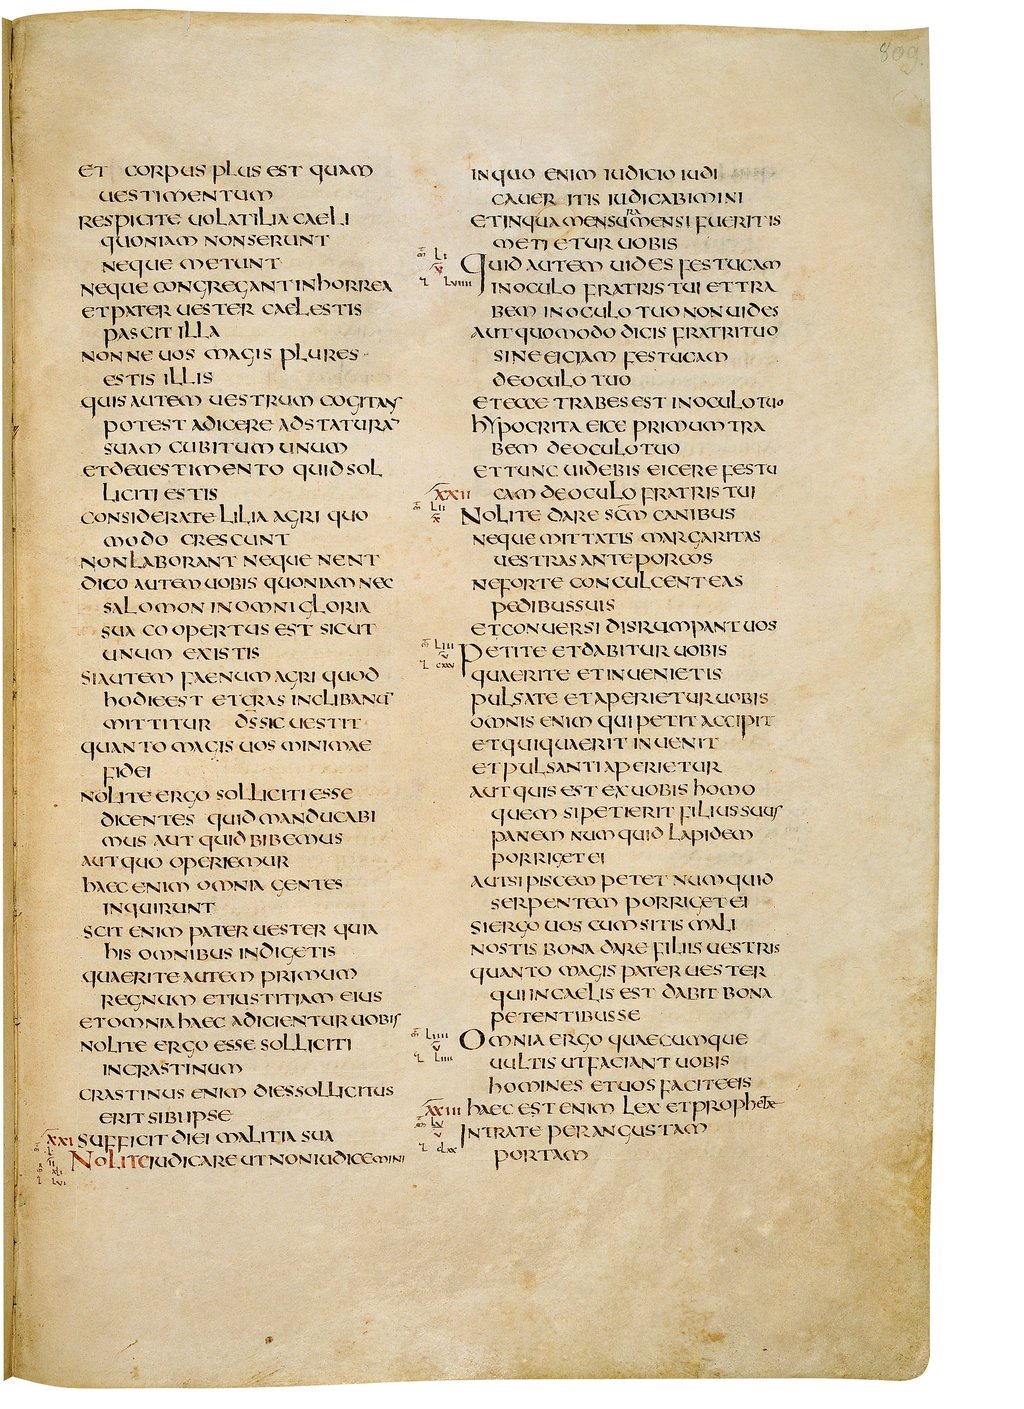 809.
ET CORPUS PLUS EST QUAM
UESTIMENTUM
RESPICITE UOLATILIA CAELI
QUONIAM NON SERUNT
NEQUE METUNT
NEQUE CONGREGANT IN HORREA
ET PATER UESTER CAELESTIS
PASCIT ILLA
NONNE UOS MAGIS PLURES
ESTIS ILLIS
QUIS AUTEM UESTRUM COGITANS
POTEST ADICERE AD STATURA
SUAM CUBITUM UNUM
ET DE UESTIMENTO QUID SOL
LICITI ESTIS
CONSIDERATE LILIA AGRI QUO
MODO CRESCUNT
NON LABORANT NEQUE NENT
DICO AUTEM UOBIS QUONIAM NEC
SALOMON IN OMNI GLORIA
SUA COOPERTUS EST SICUT
UNUM EX ISTIS
SI AUTEM FAENUM AGRI QUOD
HODIE EST ET CRAS IN CLIBANU
MITTITUR D̅S SIC UESTIT
QUANTO MAGIS UOS MINIMAE
FIDEI
NOLITE ERGO SOLLICITI ESSE
DICENTES QUID MANDUCABI
MUS AUT QUID BIBEMUS
AUT QUO OPERIEMUR
HAEC ENIM OMNIA GENTES
INQUIRUNT
SCIT ENIM PATER UESTER QUIA
HIS OMNIBUS INDIGETIS
QUAERITE AUTEM PRIMUM
REGNUM ET IUSTITIAM EIUS
ET OMNIA HAEC ADICIENTUR UOBIS
NOLITE ERGO ESSE SOLLICITI
IN CRASTINUM
CRASTINUS ENIM DIES SOLLICITUS
ERIT SIBI IPSE
XXI SUFFICIT DIEI MALITIA SUA
NOLITE IUDICARE UT NON IUDICEMINI
IN QUO ENIM IUDICIO IUDI
CAUERITIS IUDICABIMINI
ET IN QUA MENSURA MENSI FUERITIS
METIETUR UOBIS
LI
V
LVIIII
QUID AUTEM UIDES FESTUCAM
IN OCULO FRATRIS TUI ET TRA
BEM IN OCULO TUO NON UIDES
AUT QUOMODO DICIS FRATRI TUO
SINE EICIAM FESTUCAM
DE OCULO TUO
ET ECCE TRABES EST IN OCULO TUO
HYPOCRITA EICE PRIMUM TRA
BEM DE OCULO TUO
ET TUNC UIDEBIS EICERE FESTU
XXII CAM DE OCULO FRATRIS TUI
LII
X
NOLITE DARE SC̅M CANIBUS
NEQUE MITTATIS MARGARITAS
UESTRAS ANTE PORCOS
NE FORTE CONCULCENT EAS
PEDIBUS SUIS
ET CONUERSI DISRUMPANT UOS
LIII
V
CXXV
PETITE ET DABITUR UOBIS
QUAERITE ET INUENIETIS
PULSATE ET APERIETUR UOBIS
OMNIS ENIM QUI PETIT ACCIPIT
ET QUI QUAERIT INUENIT
ET PULSANTI APERIETUR
AUT QUIS EST EX UOBIS HOMO
QUEM SI PETIERIT FILIUS SUUS
PANEM NUMQUID LAPIDEM
PORRIGET EI
AUT SI PISCEM PETET NUMQUID
SERPENTEM PORRIGET EI
SI ERGO UOS CUM SITIS MALI
NOSTIS BONA DARE FILIIS UESTRIS
QUANTO MAGIS PATER UESTER
QUI IN CAELIS EST DABIT BONA
PETENTIBUS SE
LIIII
V
LIIII
OMNIA ERGO QUAECUMQUE
UULTIS UT FACIANT UOBIS
HOMINES ET UOS FACITE EIS
XXIII HAEC EST ENIM LEX ET PROPHETAE
LV
V
CLXX
INTRATE PER ANGUSTAM
PORTAM